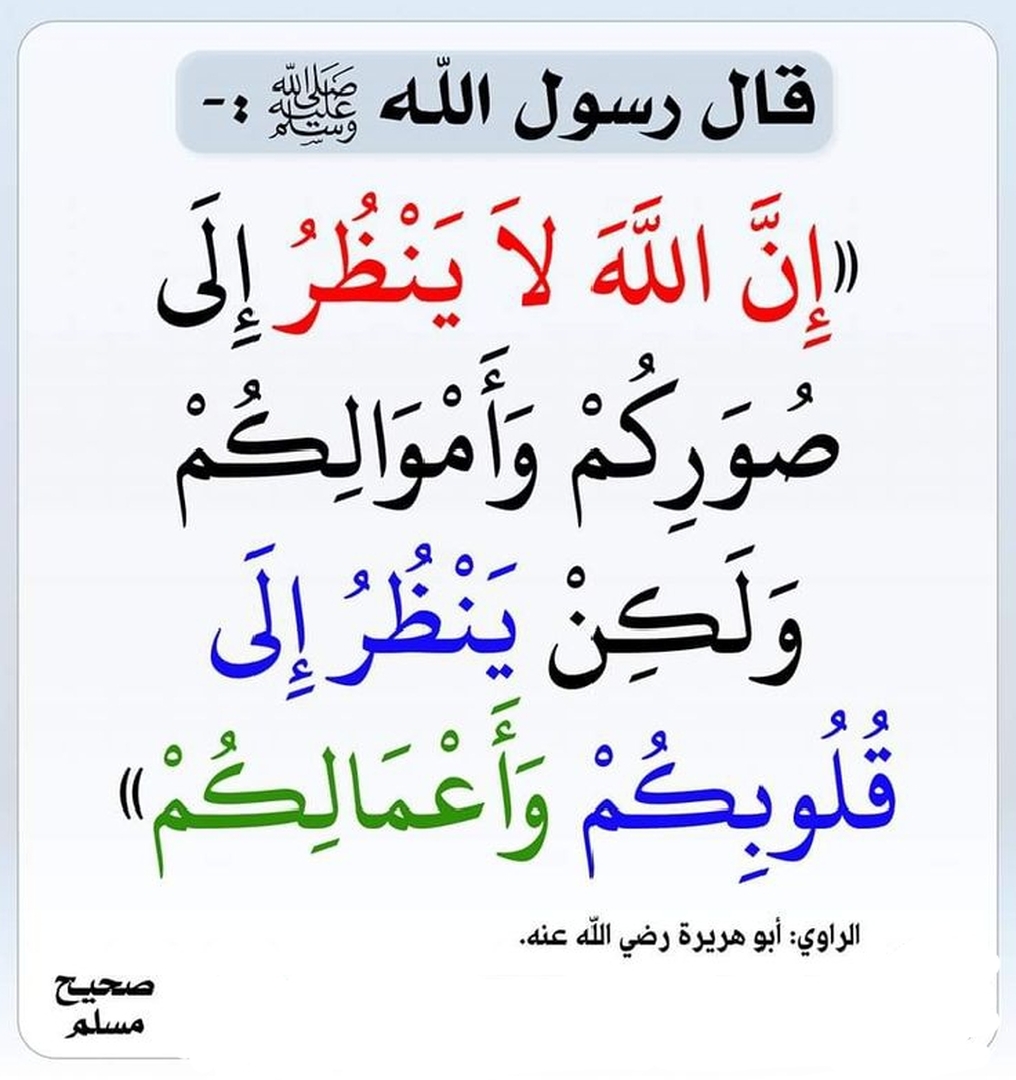 قال رسول الله ﷺ :-
«إِنَّ اللَّهَ لاَ يَنْظُرُ إِلَى
صُوَرِكُمْ وَأَمْوَالِكُمْ
وَلَكِنْ يَنْظُرُ إِلَى
قُلُوبِكُمْ وَأَعْمَالِكُمْ»
الراوي: أبو هريرة رضي الله عنه.
صحيح
مسلم